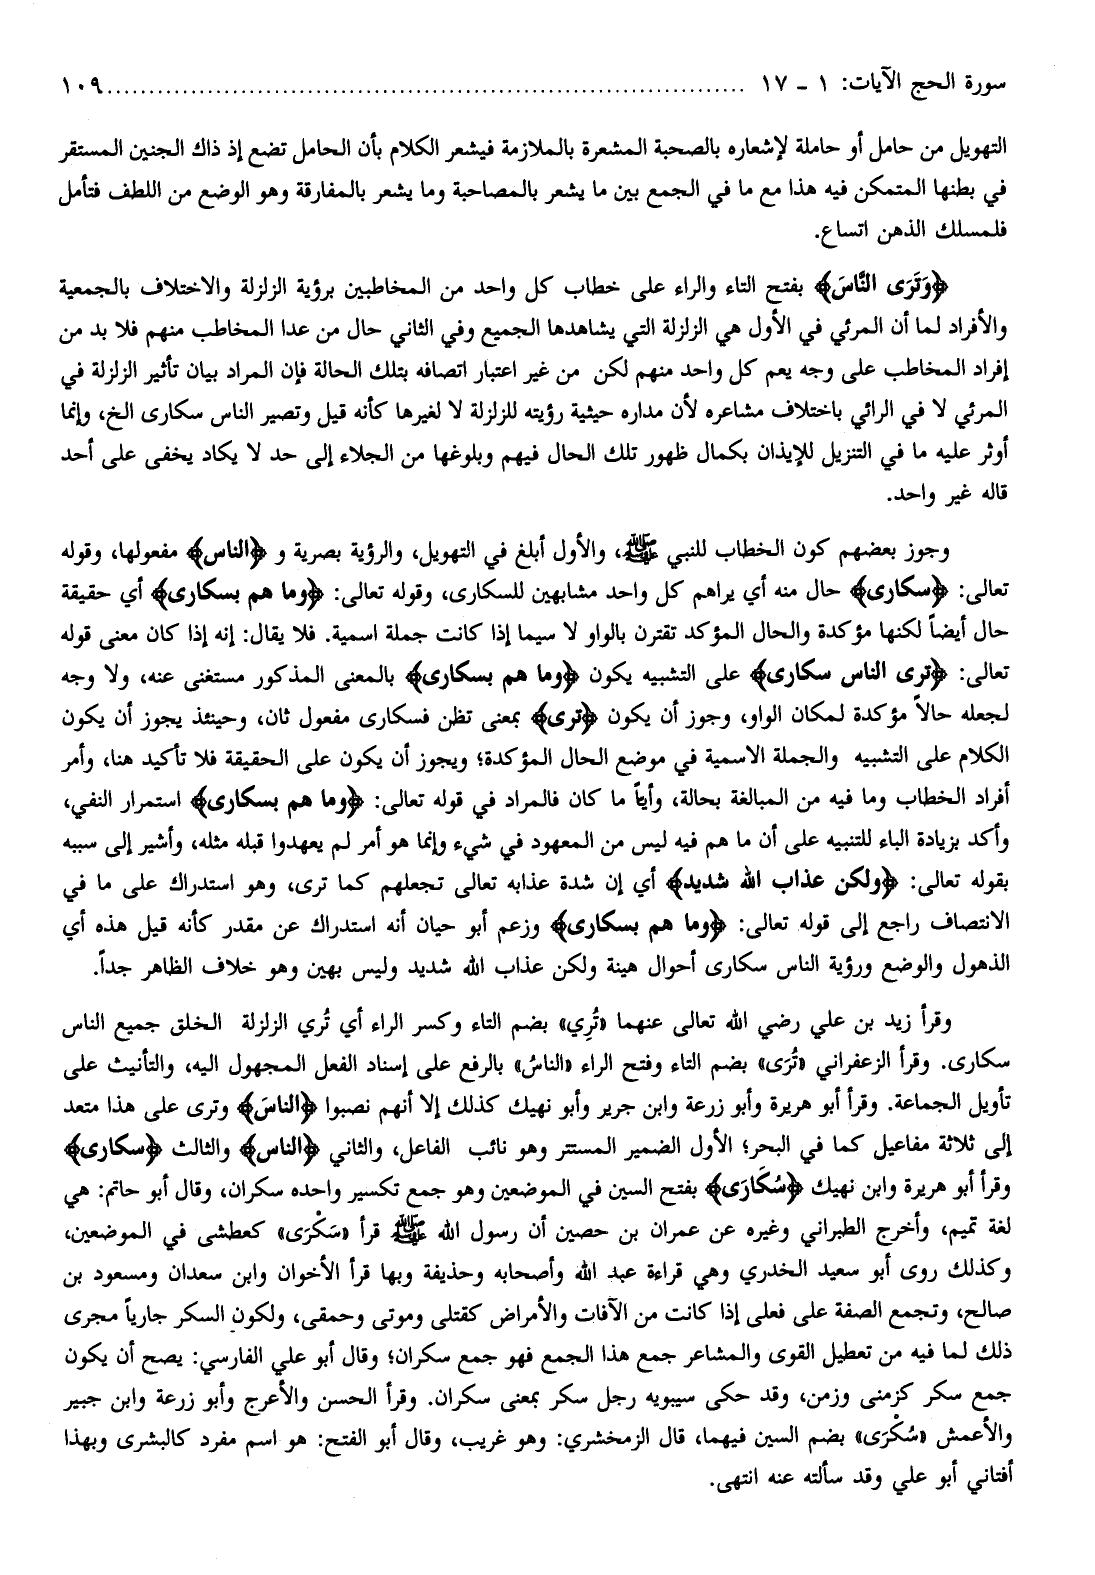 سورة الحج الآيات: ١ ـ ١٧ .......................................................................... ١٠٩
التهويل من حامل أو حاملة لإشعاره بالصحبة المشعرة بالملازمة فيشعر الكلام بأن الحامل تضع إذ ذاك الجنين المستقر
في بطنها المتمكن فيه هذا مع ما في الجمع بين ما يشعر بالمصاحبة وما يشعر بالمفارقة وهو الوضع من اللطف فتأمل
فلمسلك الذهن اتساع.
﴿وَتَرَى النَّاسَ﴾ بفتح التاء والراء على خطاب كل واحد من المخاطبين برؤية الزلزلة والاختلاف بالجمعية
والأفراد لما أن المرئي في الأول هي الزلزلة التي يشاهدها الجميع وفي الثاني حال من عدا المخاطب منهم فلا بد من
إفراد المخاطب على وجه يعم كل واحد منهم لكن من غير اعتبار اتصافه بتلك الحالة فإن المراد بيان تأثير الزلزلة في
المرئي لا في الرائي باختلاف مشاعره لأن مداره حيثية رؤيته للزلزلة لا لغيرها كأنه قيل وتصير الناس سكارى الخ، وإنما
أوثر عليه ما في التنزيل للإيذان بكمال ظهور تلك الحال فيهم وبلوغها من الجلاء إلى حد لا يكاد يخفى على أحد
قاله غير واحد.
وجوز بعضهم كون الخطاب للنبي ﷺ، والأول أبلغ في التهويل، والرؤية بصرية و ﴿الناس﴾ مفعولها، وقوله
تعالى: ﴿سكارى﴾ حال منه أي يراهم كل واحد مشابهين للسكارى، وقوله تعالى: ﴿وما هم بسكارى﴾ أي حقيقة
حال أيضاً لكنها مؤكدة والحال المؤكد تقترن بالواو لا سيما إذا كانت جملة اسمية. فلا يقال: إنه إذا كان معنى قوله
تعالى: ﴿ترى الناس سكارى﴾ على التشبيه يكون ﴿وما هم بسكارى﴾ بالمعنى المذكور مستغنى عنه، ولا وجه
لجعله حالاً مؤكدة لمكان الواو، وجوز أن يكون ﴿ترى﴾ بمعنى تظن فسكارى مفعول ثان، وحينئذ يجوز أن يكون
الكلام على التشبيه والجملة الاسمية في موضع الحال المؤكدة؛ ويجوز أن يكون على الحقيقة فلا تأكيد هنا، وأمر
أفراد الخطاب وما فيه من المبالغة بحالة، وأياً ما كان فالمراد في قوله تعالى: ﴿وما هم بسكارى﴾ استمرار النفي،
وأكد بزيادة الباء للتنبيه على أن ما هم فيه ليس من المعهود في شيء وإنما هو أمر لم يعهدوا قبله مثله، وأشير إلى سببه
بقوله تعالى: ﴿ولكن عذاب الله شديد﴾ أي إن شدة عذابه تعالى تجعلهم كما ترى، وهو استدراك على ما في
الانتصاف راجع إلى قوله تعالى: ﴿وما هم بسكارى﴾ وزعم أبو حيان أنه استدراك عن مقدر كأنه قيل هذه أي
الذهول والوضع ورؤية الناس سكارى أحوال هينة ولكن عذاب الله شديد وليس بهين وهو خلاف الظاهر جداً.
وقرأ زيد بن علي رضي الله تعالى عنهما «تُرِي» بضم التاء وكسر الراء أي تُري الزلزلة الخلق جميع الناس
سكارى. وقرأ الزعفراني «تُرَى» بضم التاء وفتح الراء «الناسُ» بالرفع على إسناد الفعل المجهول اليه، والتأنيث على
تأويل الجماعة. وقرأ أبو هريرة وأبو زرعة وابن جرير وأبو نهيك كذلك إلا أنهم نصبوا ﴿الناسَ﴾ وترى على هذا متعد
إلى ثلاثة مفاعيل كما في البحر؛ الأول الضمير المستتر وهو نائب الفاعل، والثاني ﴿الناس﴾ والثالث ﴿سكارى﴾
وقرأ أبو هريرة وابن نهيك ﴿سُكَارَى﴾ بفتح السين في الموضعين وهو جمع تكسير واحده سكران، وقال أبو حاتم: هي
لغة تميم، وأخرج الطبراني وغيره عن عمران بن حصين أن رسول الله ﷺ قرأ «سَكْرَى» كعطشى في الموضعين،
وكذلك روى أبو سعيد الخدري وهي قراءة عبد الله وأصحابه وحذيفة وبها قرأ الأخوان وابن سعدان ومسعود بن
صالح، وتجمع الصفة على فعلى إذا كانت من الآفات والأمراض كقتلى وموتى وحمقى، ولكون السكر جارياً مجرى
ذلك لما فيه من تعطيل القوى والمشاعر جمع هذا الجمع فهو جمع سكران؛ وقال أبو علي الفارسي: يصح أن يكون
جمع سكر كزمنى وزمن، وقد حكى سيبويه رجل سكر بمعنى سكران. وقرأ الحسن والأعرج وأبو زرعة وابن جبير
والأعمش «سُكْرَى» بضم السين فيهما، قال الزمخشري: وهو غريب، وقال أبو الفتح: هو اسم مفرد كالبشرى وبهذا
أفتاني أبو علي وقد سألته عنه انتهى.